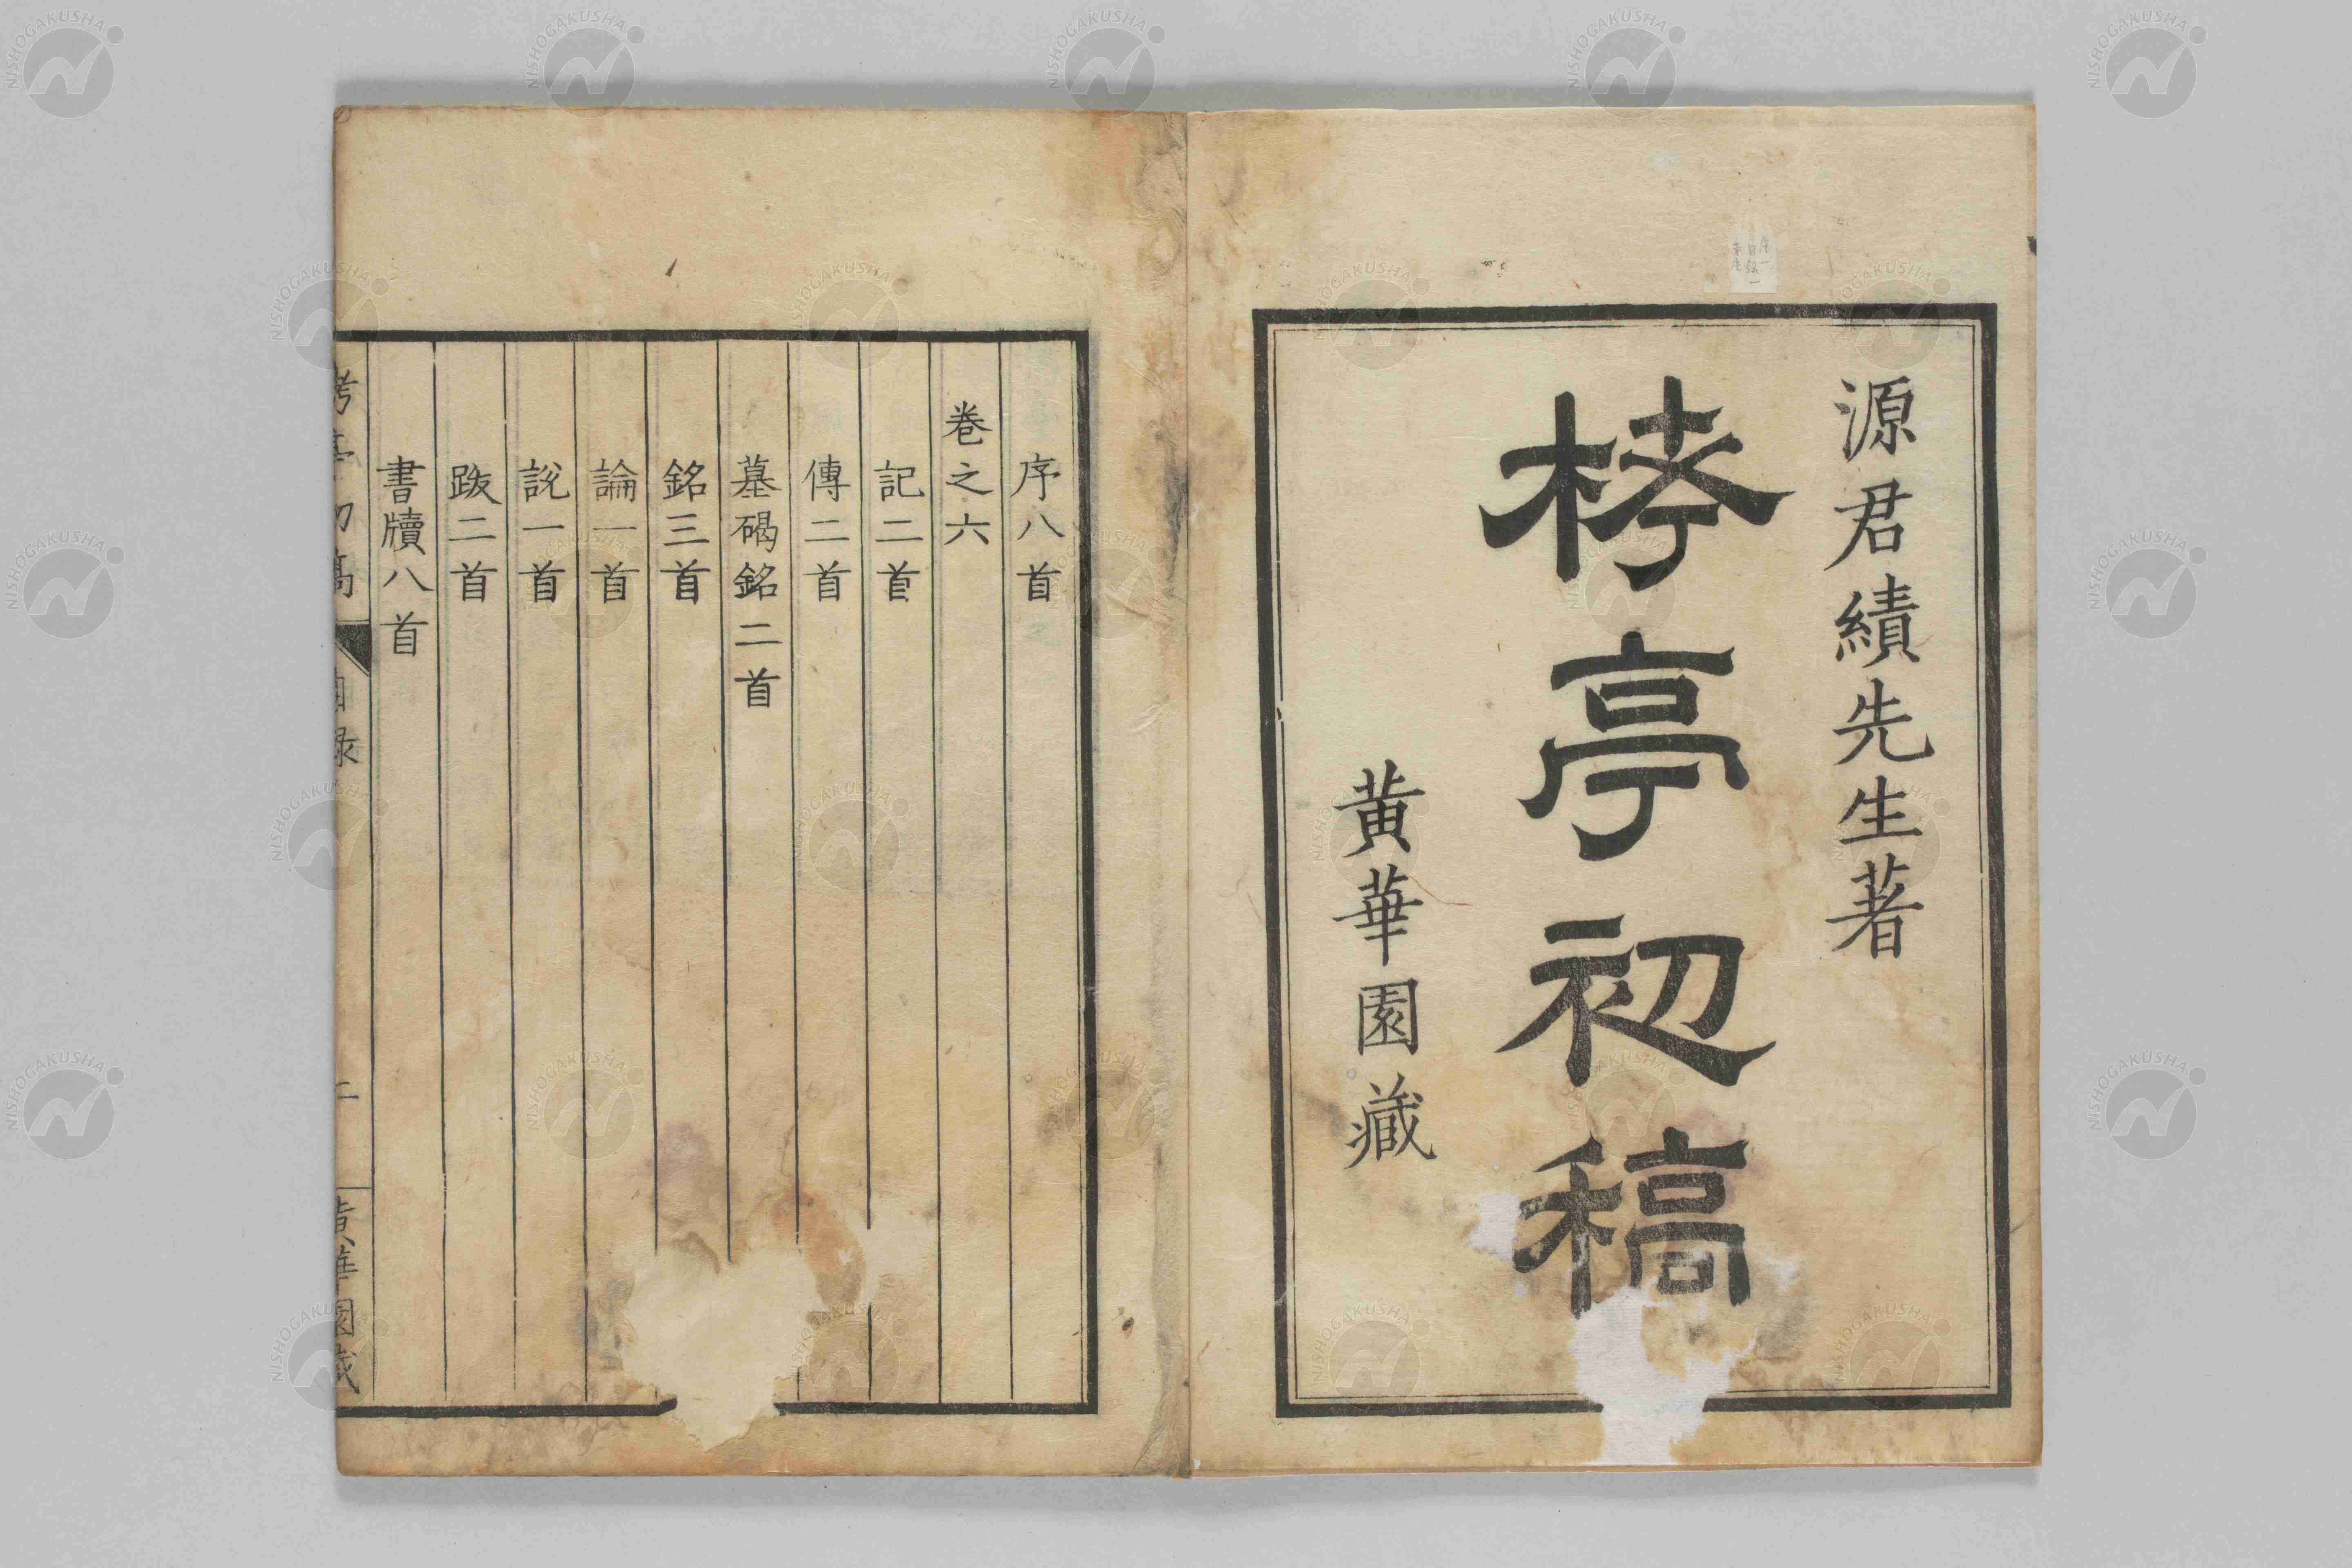 源君績先生著
栲亭初稿
黄華園藏
序八首
卷之六
記二首
傳二首
墓碣銘二首
銘三首
論一首
說一首
跋二首
書牘八首
栲亭初稿 目録 二 黄華園藏
NISHOGAKUSHA